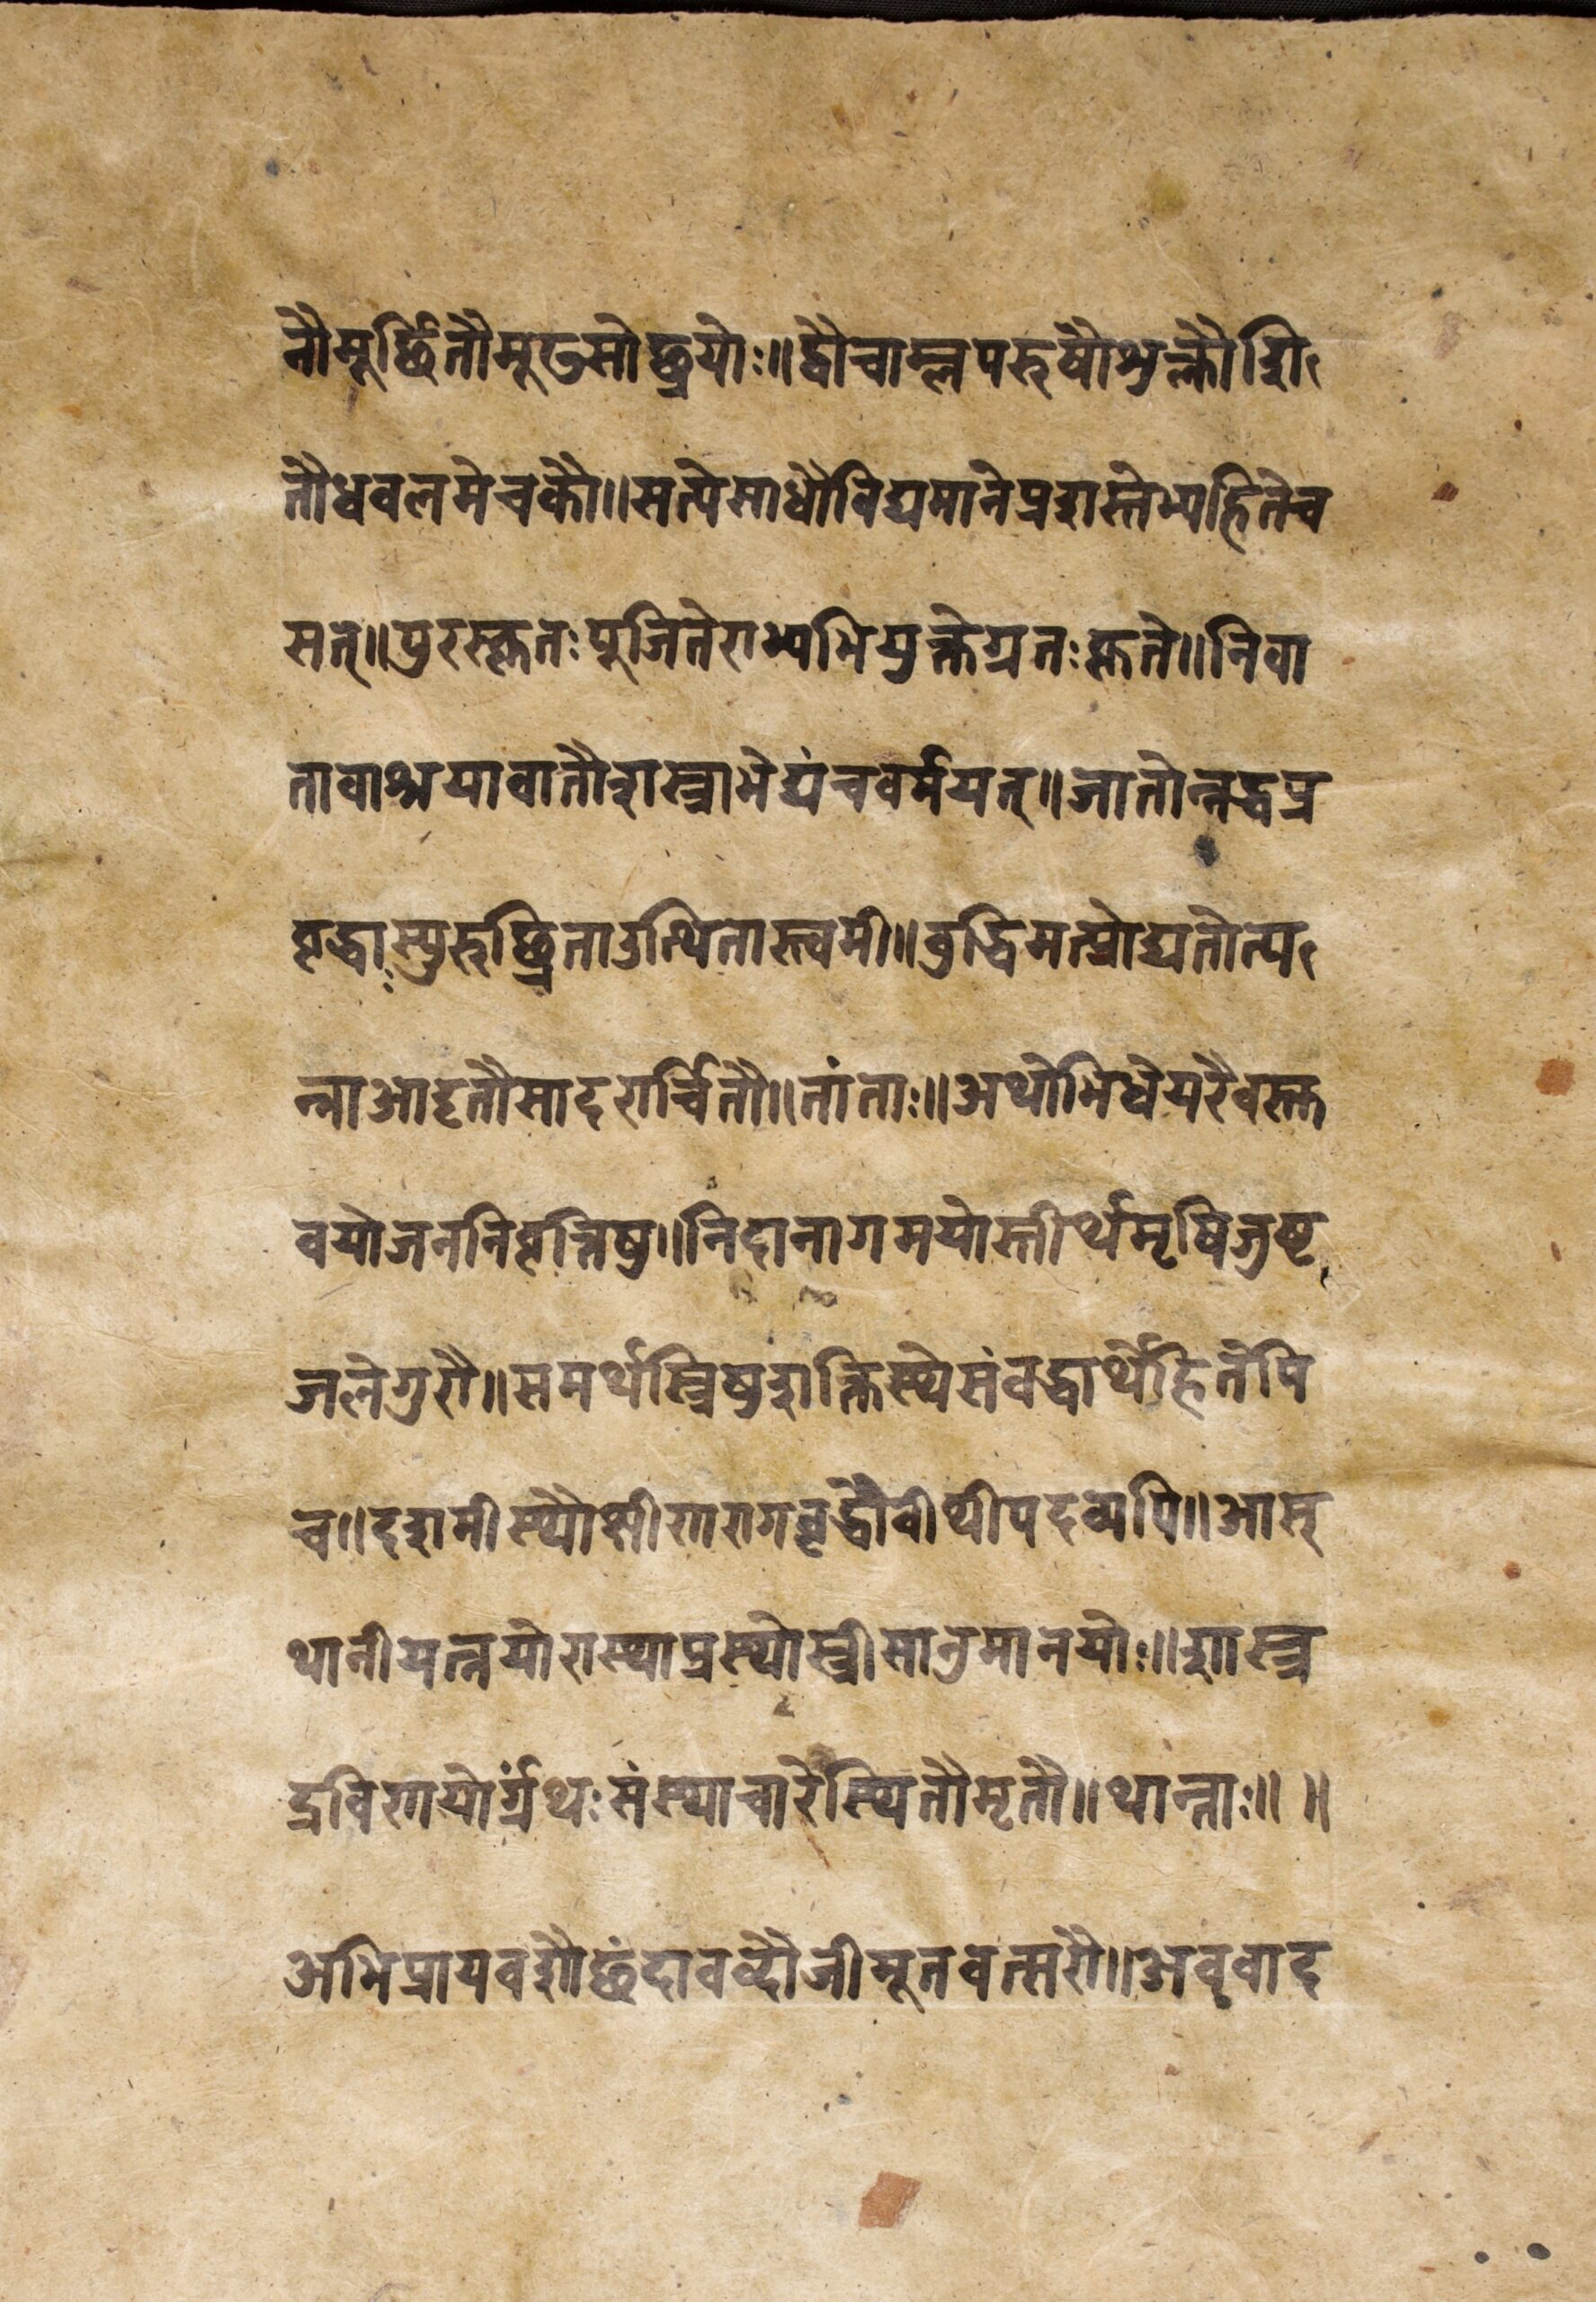 तौमूर्छितौमूढसोछ्रयोः॥द्वौचाम्लपरुषौशुक्तौशि
तौधवलमेचकौ॥सत्येसाधौविद्यमानेप्रशस्तेभ्यहितेच
सत्॥पुरस्कृतःपूजितेराभ्यभियुक्तेग्रतःकृते॥निवा
तावाश्रयावातौशस्त्राभेद्यंचवर्मयत्॥जातोन्नद्धप्र
वृद्धास्युरुछ्रिताउत्थितास्त्वमी॥वुद्धिमत्प्रोद्यतोत्प
न्नाआदृतौसादरार्चितौ॥तांताः॥अथोभिधेयरैवस्तु
वयोजननिवृत्तिषु॥निदानागमयोस्तीर्थमृषिजुष्ट
जलेगुरौ॥समर्थस्त्रिषुशक्तिस्थेसंवद्धार्थेहितेपि
च॥दशमीस्थौक्षीणरागवृद्धौवीथीपदव्यपि॥आस्
थानीयत्नयोरास्थाप्रस्थोस्त्रीसानुमानयोः॥शास्त्र
द्रविणयोर्ग्रंथःसंस्थाचारेस्थितौमृतौ॥थान्ताः॥॥
अभिप्रायवशौछंदावव्दौजीमूतवत्सरौ॥अववाद